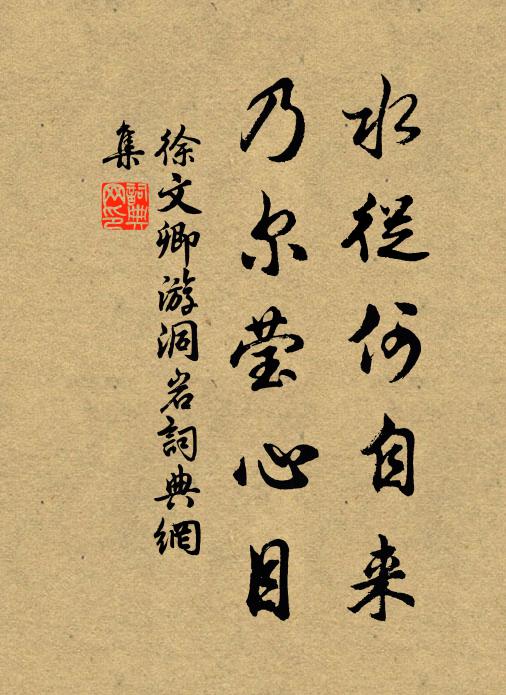 水從何自来
乃尔莹心目
徐文卿游洞岩詞典網
集
詞典网印